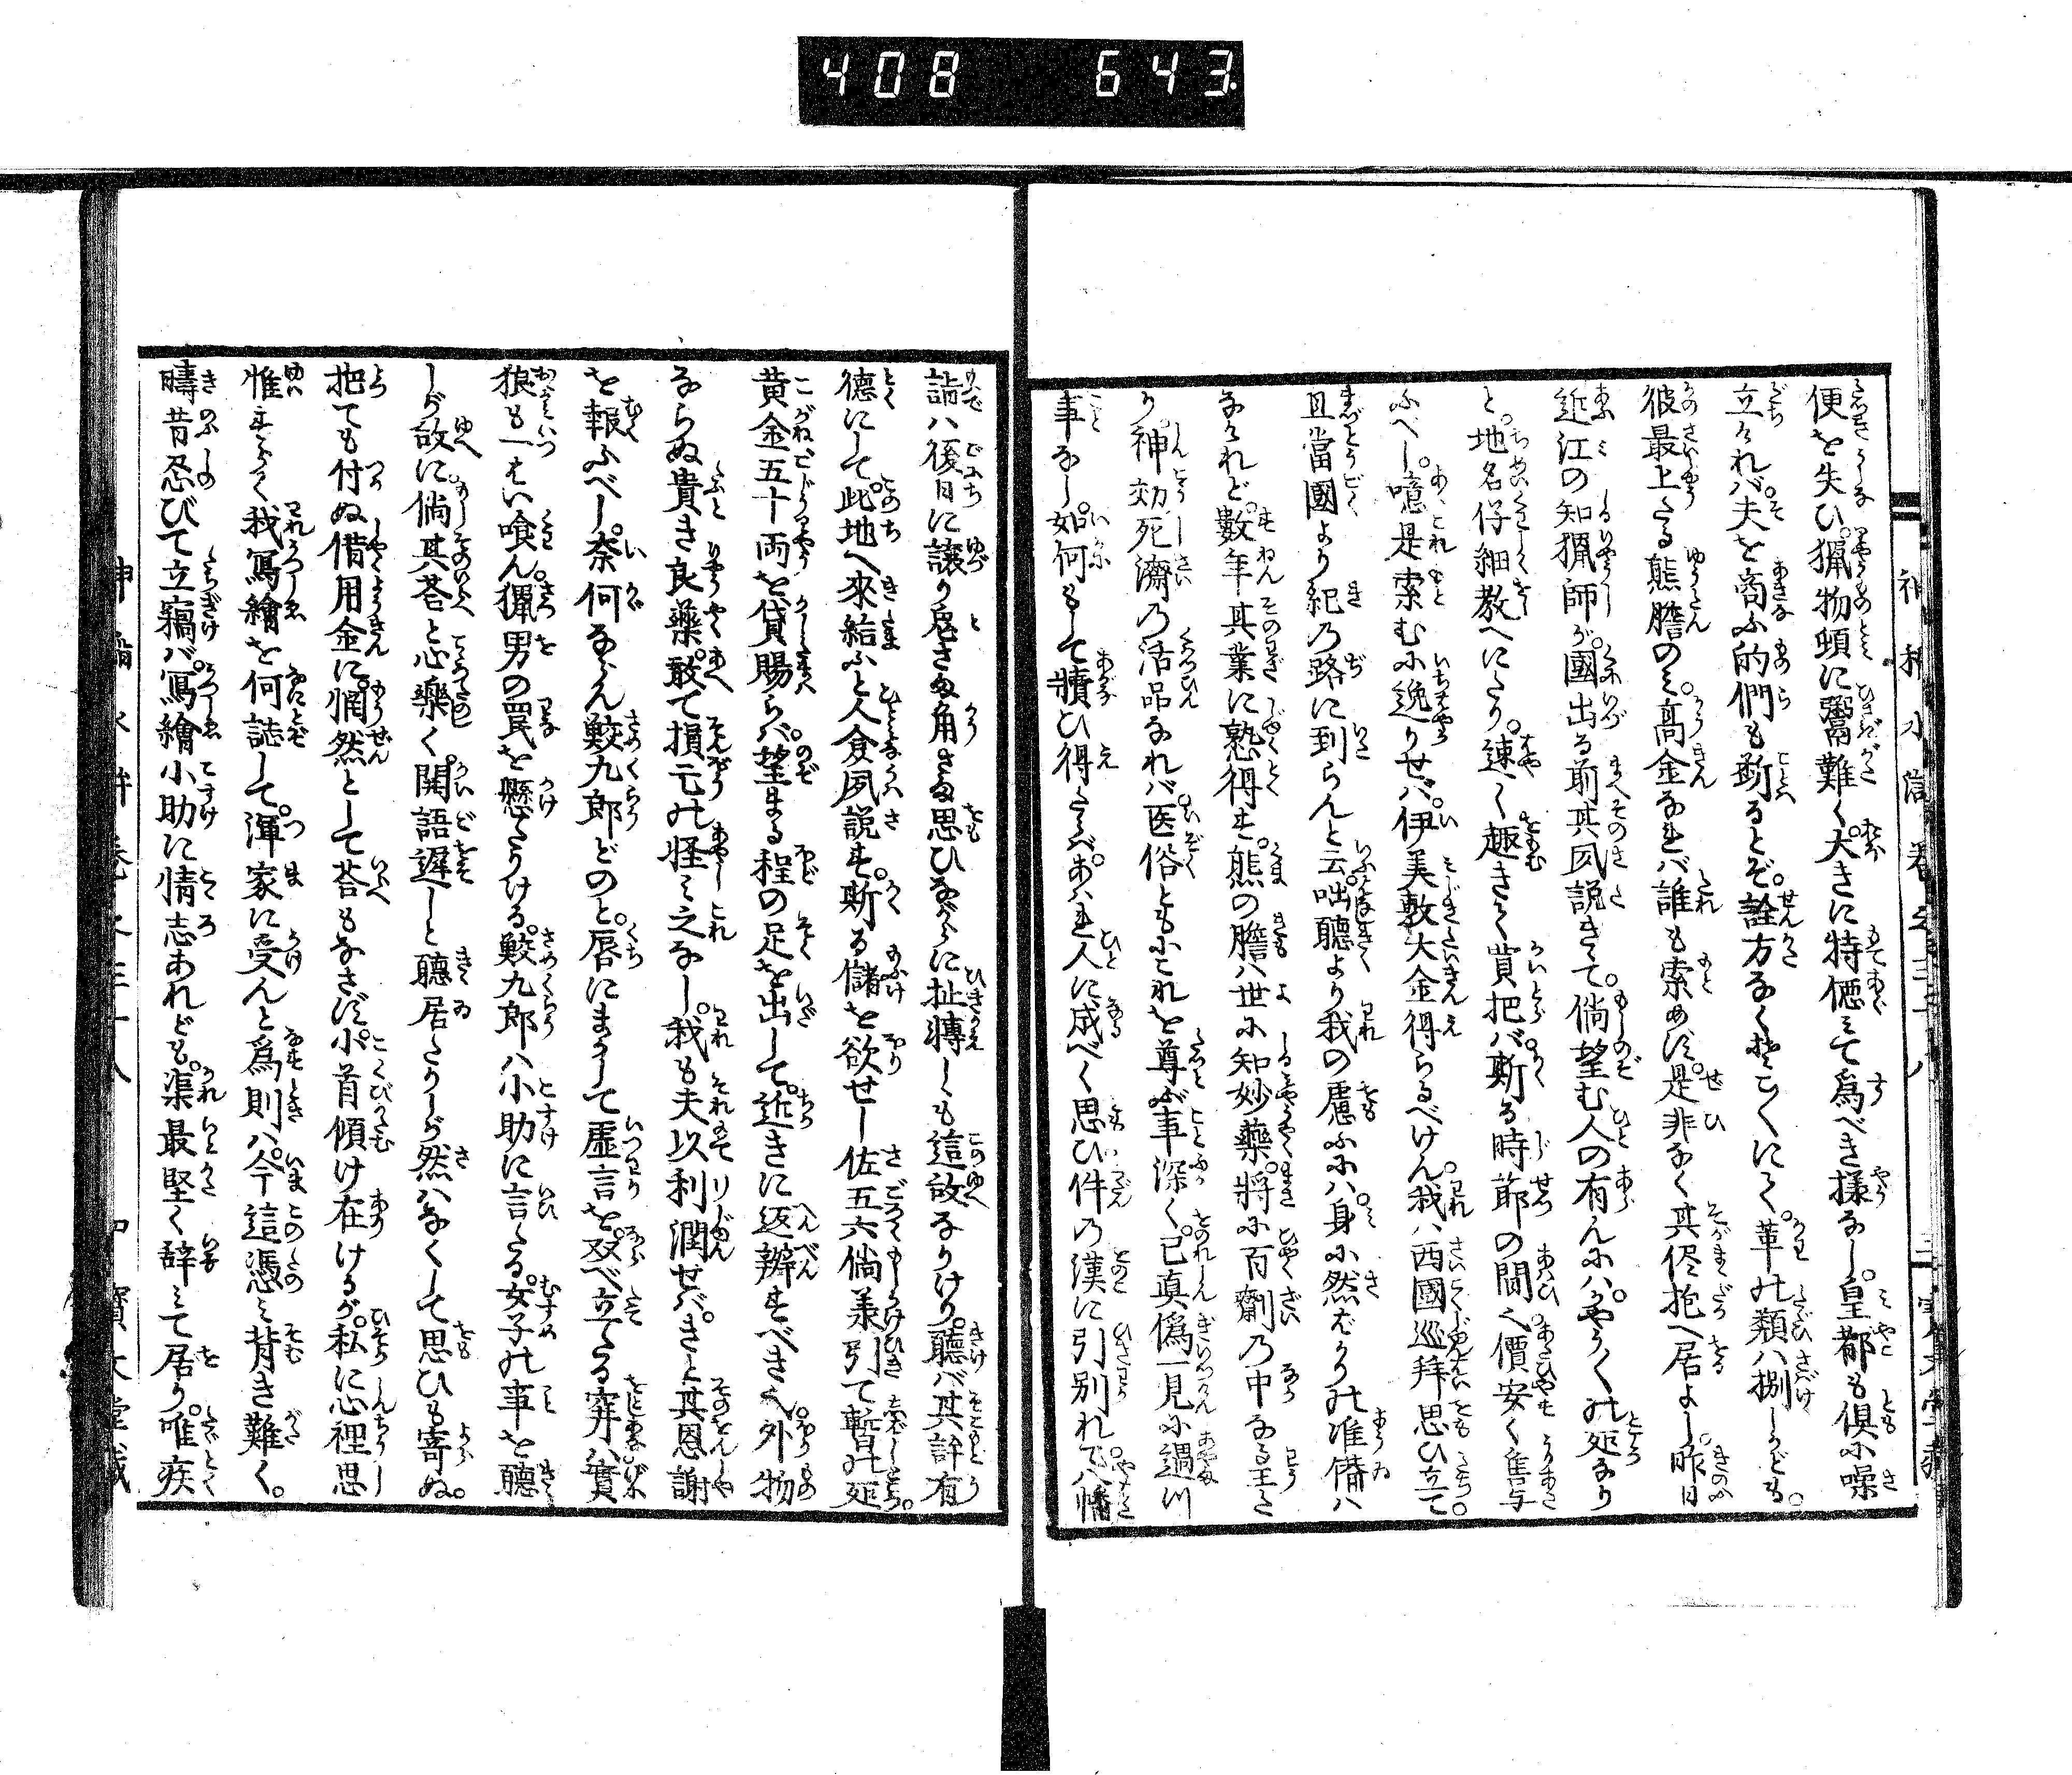 408 643
便を失ひ。猟物頓に鬻難く。大きに特偲みて為べき様なし。皇都も倶に噪
立られバ。夫を商ふ的們も断るとぞ。詮方なくそこくにて。革の類ハ捌しかども。
彼最上なる熊膽のミ。高金なれバ誰も索めず。是非なく其侭抱へ居よし。昨日
近江の知猟師が。國出る前其風説きて。倘望む人の有んにハ。かやうくの処なり
と。地名仔細教へにたり。速く趣きて買把バ。斯る時節の間ハ。價安く售与
ふべし。噫是索むに逸りせバ。伊美敷大金得らるべけん。我ハ西國巡拜思ひ立て。
且當國より紀の路に到らんと云。咄聽より我の慮ふにハ。身に然ばかりの准備ハ
なけれど。數年其業に熟得す。熊の膽ハ世に知妙藥。將に百劑の中なる王た
り。神効死濟の活品なれバ。医俗ともにこれを尊ぶ事深く。己真偽一見に過川
事なし。如何もして購ひ得たらバ。あハれ人に成べく思ひ件の漢に引別れて。八幡
詣ハ後日に譲り。兎さま角さま思ひながらに扯轉しも這故なりけり。聽バ其許有
徳にして。此地へ來給ふと人僉夙説す。斯る儲を欲せし佐五六倘美引て暫の処。
黄金五十両を貸賜らバ。望まる程の足を出して。近きに返辨すべき也。外物
ならぬ貴き良藥。敢て損亡の怪み之なし。我も夫以利潤せバ。きと其恩謝
を報ふべし。奈何ならん鮫九郎どのと。唇にまかして虚言を。双べ立たる穽ハ實
狼も一はい喰ん。猟男の罠を懸たりける。鮫九郎ハ小助に言たる。女子の事を聽
しが故に。倘其荅と心樂く。開語遲しと聽居たりしが然ハなくして思ひも寄ぬ。
把ても付ぬ借用金に。惘然として荅もなさず。小首傾け在けるが。私に心裡思
惟すらく我寫繪を何誌して。渾家に受んと為則ハ。今這憑ミ背き難く。
疇昔忍びて立竊バ。寫繪小助に情志あれども。渠最堅く辞ミて居り。唯疾